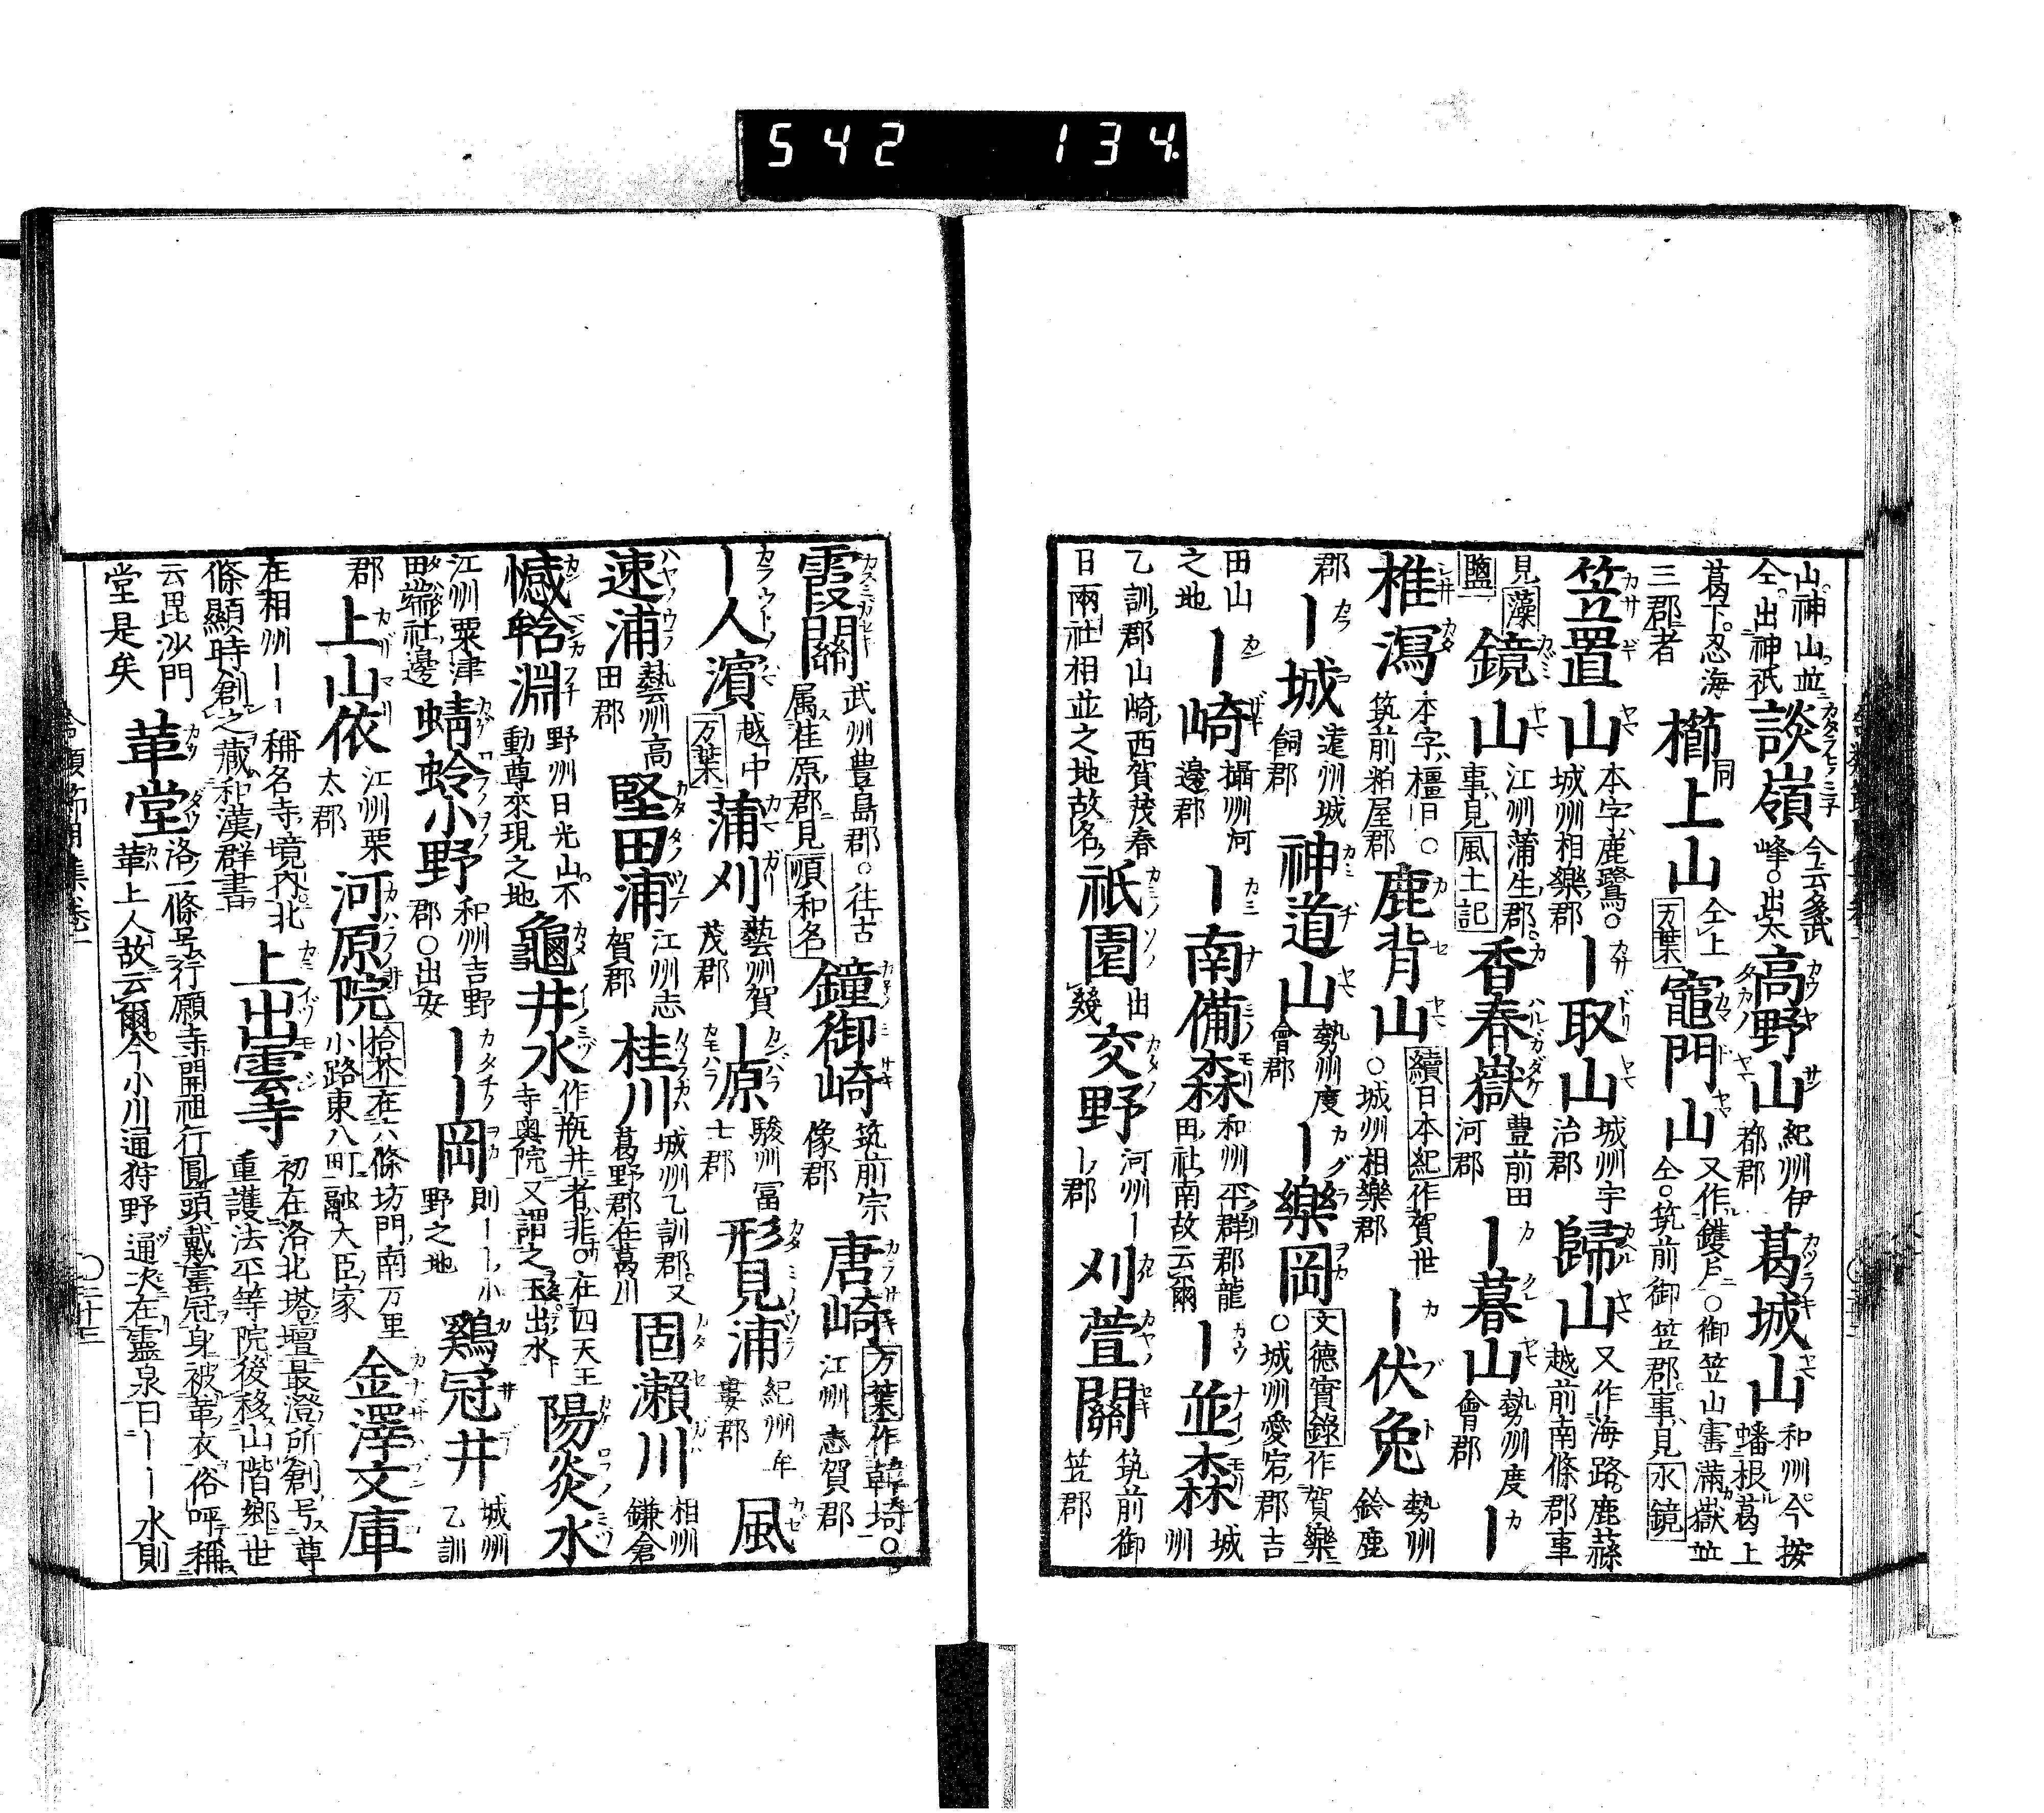 542 134.
山。神山並
仝。出神祇
談嶺 今云多武峰。出太
高野山 紀州伊都郡
葛城山 和州。今按蟠根葛上
葛下。忍海
三郡者
櫛上山 同 仝上 万葉
竈門山 又作鑊戸。○御笠山寶滿嶽並仝。筑前御笠郡。事見 水鏡
笠置山 本字鹿鷺。○城州相樂郡
ー取山 城州宇治郡
歸山 又作海路。鹿蒜越前南條郡事
見 藻
鹽
鏡山 江州蒲生郡。事見 風土記
香春嶽 豊前田河郡
ー暮山 勢州度會郡
ー
椎瀉 本字橿日。○筑前粕屋郡
鹿背山 續日本紀 作賀世。○城州相樂郡
ー伏兔 勢州鈴鹿
郡
ー城 遠州城飼郡
神道山 勢州度會郡
ー樂岡 文德實錄 作賀樂。○城州愛宕郡吉
田山
之地
ー崎 攝州河邊郡
ー南備森 和州平群郡龍田社南故云爾
ー並森 城州
乙訓郡山崎西賀茂春
日兩社相並之地故名
祇園 出幾
交野 河州ー郡
刈萱關 筑前御笠郡
霞關 武州豊島郡。○往古属荏原郡見 順和名
鐘御崎 筑前宗像郡
唐崎 万葉 作韓埼。○江州志賀郡
ー人濱 越中 万葉
蒲刈 藝州賀茂郡
ー原 駿州富士郡
形見浦 紀州牟婁郡
風
速浦 藝州高田郡
堅田浦 江州志賀郡
桂川 城州乙訓郡。又葛野郡在葛川
固瀬川 相州鎌倉
憾𤛗淵 野州日光山不動尊來現之地
龜井水 作瓶井者非。○在四天王寺奥院又謂之玉出水
陽炎水
江州粟津
田端社邊
蜻蛉小野 和州吉野郡○出安
ーー岡 則ーー小野之地
鷄冠井 城州乙訓
郡
上山依 江州栗太郡
河原院 拾芥 在六條坊門南万里小路東八町融大臣家
金澤文庫
在相州ーー稱名寺境內北
條顯時創之藏和漢群書
上出雲寺 初在洛北塔壇最澄所創号尊重護法平等院後移山階鄉世
云毘沙門
堂是矣
革堂 洛一條号行願寺開祖行圓頭戴寳冠身被革衣俗呼稱革上人故云爾。今小川通狩野通次在靈泉曰ーー水則
合類節用集卷一
〇二十三